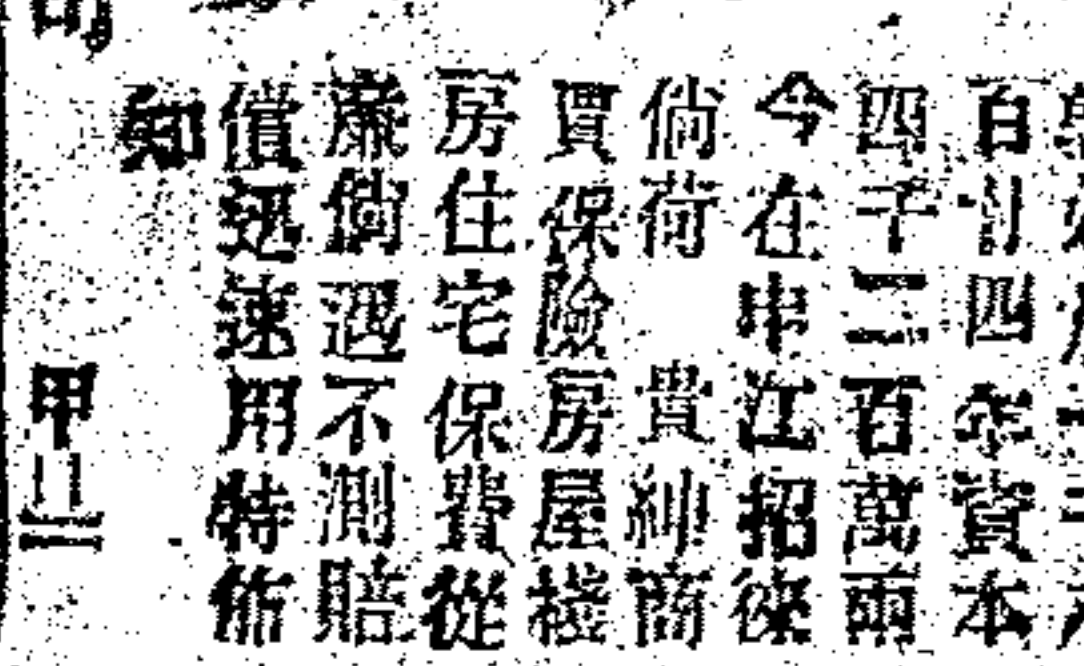 四年資本
四千二百萬兩
今在申江招徠
倘荷 貴紳商
賈保險房屋棧
房住宅保費從
廉倘遇不測賠
償迅速用特佈
知
甲